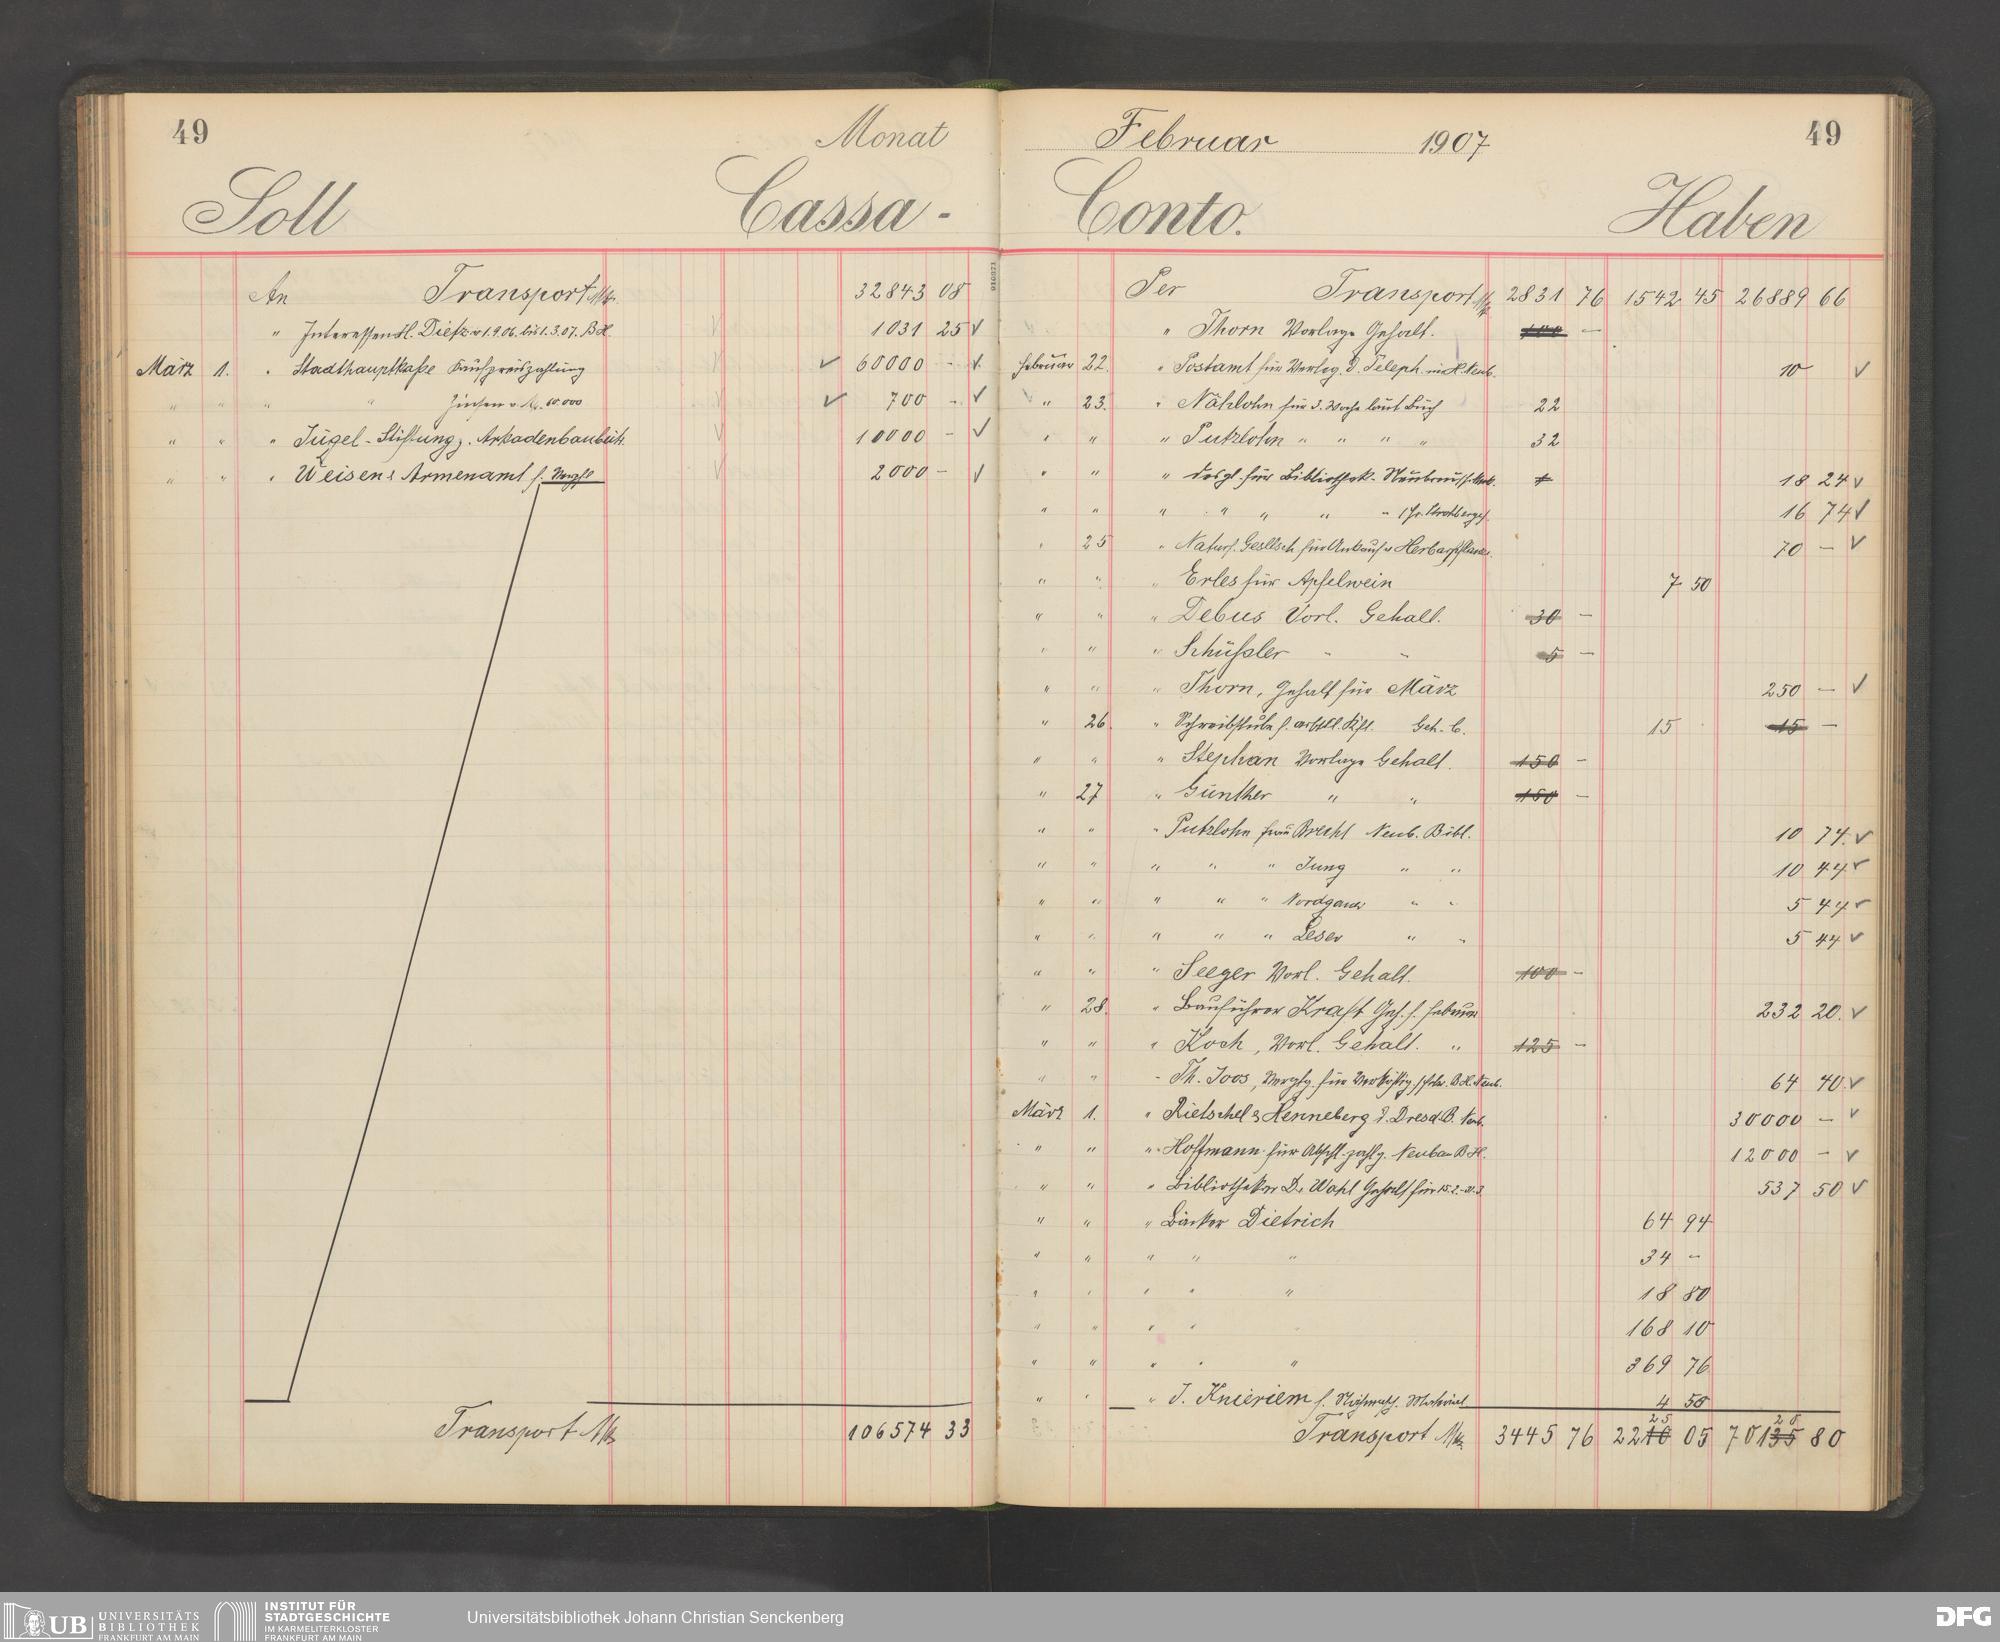 49
Monat
Soll
Cassa-
An Transport Mk. 32843 08
" Interessen Dietz v. 1.9.06. bis 1.3.07. B.H. 1031 25 ✓
März 1. " Stadthauptkaße Kaufpreiszahlung ✓ 60000 - ✓
" " " " Zinsen v. M. 60.000 ✓ 700 - ✓
" " " Jügel-Stiftung z. Arkadenbau 10000 - ✓
" " " Weisen & Armenamt f. 2000 - ✓
Transport Mk 106574 33
Februar 1907
49
Conto.
Haben
910071
Per Transport Mk 2831 76 1542 45 26889 66
" Thorn Vorlage Gehalt. 100 -
Februar 22. " Postamt für Verleg. d. Teleph. 10 ✓
" 23. " Nählohn für 3. Woche laut Buch 22
" " " Putzlohn " " " " 32
" " " desgl. für Bibliothek- 18 24 ✓
" " " " " " " 16 74 ✓
" 25 " Naturf. Gesllsch. für Ankauf v. 70 - ✓
" " " Erles für Apfelwein 7 50
" " " Debus Vorl. Gehalt. 30 -
" " " Schüßler " " 5 -
" " " Thorn, Gehalt für März 250 - ✓
" 26. " Schreibstube f. Geh. C. 15 15 -
" " " Stephan Vorlage Gehalt. 150 -
" 27 " Günther " " 150 -
" " " Putzlohn frau Brecht Neub. Bibl. 10 74 ✓
" " " " " Jung " " 10 44 ✓
" " " " " " " 5 44 ✓
" " " " " Leser " " 5 44 ✓
" " " Seeger Vorl. Gehalt. 100 -
" 28. " Bauführer Kraft Geh. f. Februar 232 20 ✓
" " " Koch, Vorl. Gehalt. " 125 -
" " " Th. Joos, 64 40 ✓
März 1. " Rietschel & Henneberg 30000 - ✓
" " " Hoffmann für Neubau B.H. 12000 - ✓
" " " Bibliothekar Dr. Wahl Gehalt für 15.2.-31.3. 537 50 ✓
" " " Bäcker Dietrich 64 94
" " " " " 34 -
" " " " " 18 80
" " " " 168 10
" " " " " 369 76
" " " J. Knieriem f. 4 50
25 20
Transport Mk. 3445 76 2210 05 70135 80
UB UNIVERSITÄTS
BIBLIOTHEK
FRANKFURT AM MAIN
INSTITUT FÜR
STADTGESCHICHTE
IM KARMELITERKLOSTER
FRANKFURT AM MAIN
Universitätsbibliothek Johann Christian Senckenberg
DFG